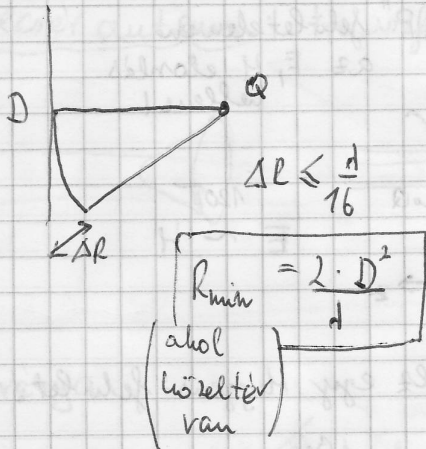 D
Q
ΔR ≤ λ/16
ΔR
R_min = 2 · D² / λ
(ahol
közeltér
van)